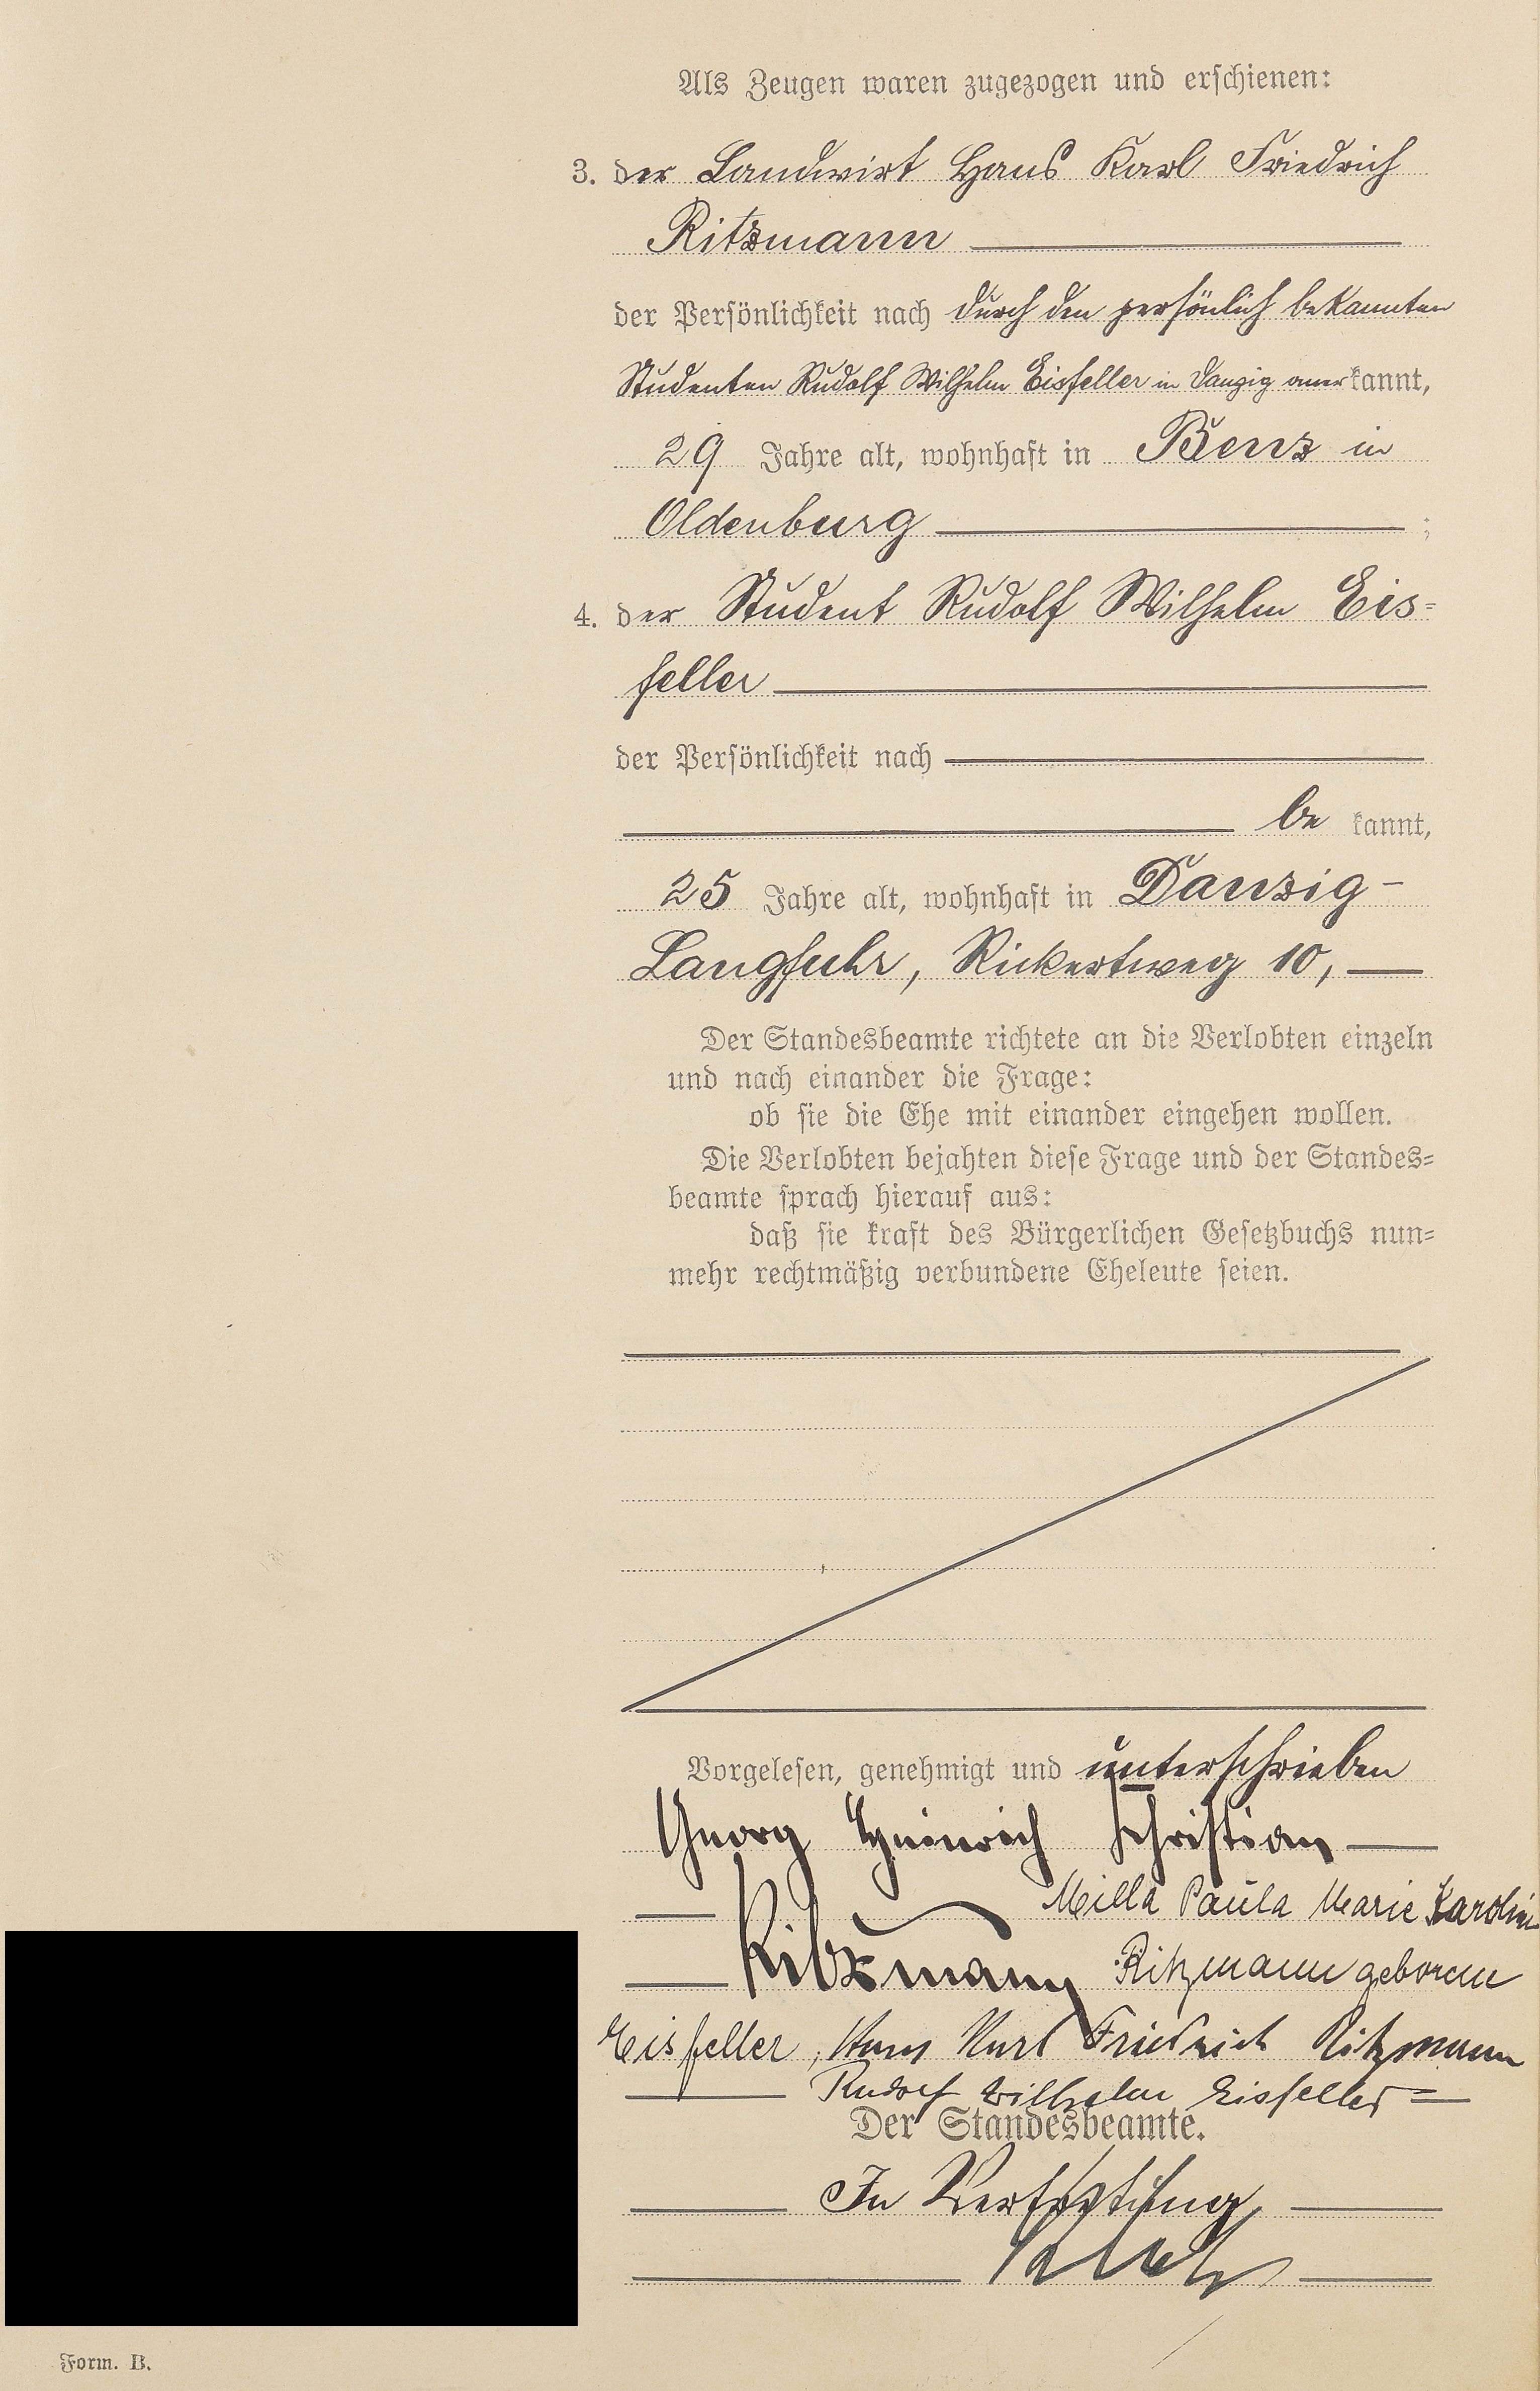 Als Zeugen waren zugezogen und erschienen:
3. der Landwirt Hans Karl Friedrich
Ritzmann
der Persönlichkeit nach durch den persönlich bekannten
Studenten Rudolf Wilhelm Eisfeller in Danzig anerkannt,
29 Jahre alt, wohnhaft in Benz in
Oldenburg ;
4. der Student Rudolf Wilhelm Eis=
feller
der Persönlichkeit nach
be kannt,
25 Jahre alt, wohnhaft in Danzig-
Langfuhr, Rickertweg 10,
Der Standesbeamte richtete an die Verlobten einzeln
und nach einander die Frage:
ob sie die Ehe mit einander eingehen wollen.
Die Verlobten bejahten diese Frage und der Standes=
beamte sprach hierauf aus:
daß sie kraft des Bürgerlichen Gesetzbuchs nun=
mehr rechtmäßig verbundene Eheleute seien.
Vorgelesen, genehmigt und unterschrieben
Georg Heinrich Christian
Ritzmann
Milla Paula Marie Karoline
Ritzmann geborene
Eisfeller, Hans Karl Friedrich Ritzmann
Rudolf Wilhelm Eisfeller
Der Standesbeamte.
In Vertretung
Form. B.